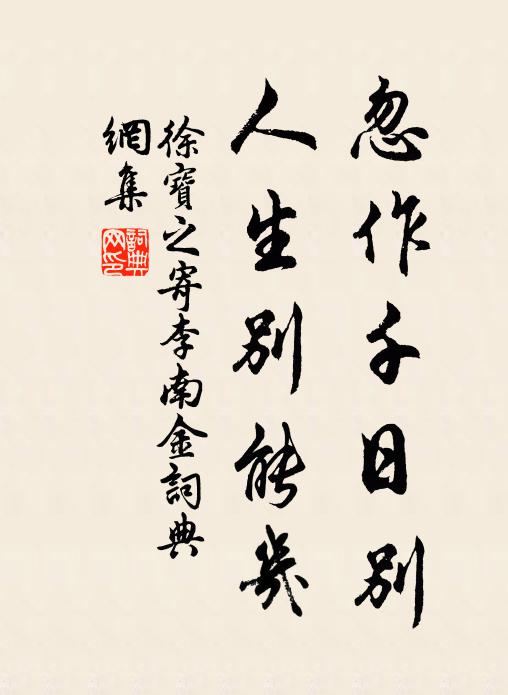 忽作千日別
人生別能幾
徐寶之寄李南金詞典
網集
詞典
网印